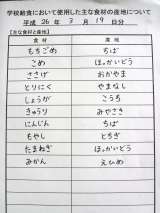 学校給食において使用した主な食材の産地について
平成 26 年 3 月 19 日分
【主な食材と産地】
食材 産地
もちごめ ちば
こめ ほっかいどう
ささげ おかやま
とりにく やまなし
しょうが こうち
きゅうり みやざき
にんじん ちば
もやし とちぎ
たまねぎ ほっかいどう
みかん えひめ